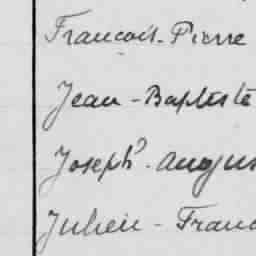 Francois-Pierre
Jean-Baptiste
Joseph-Augus
Julien-Franc